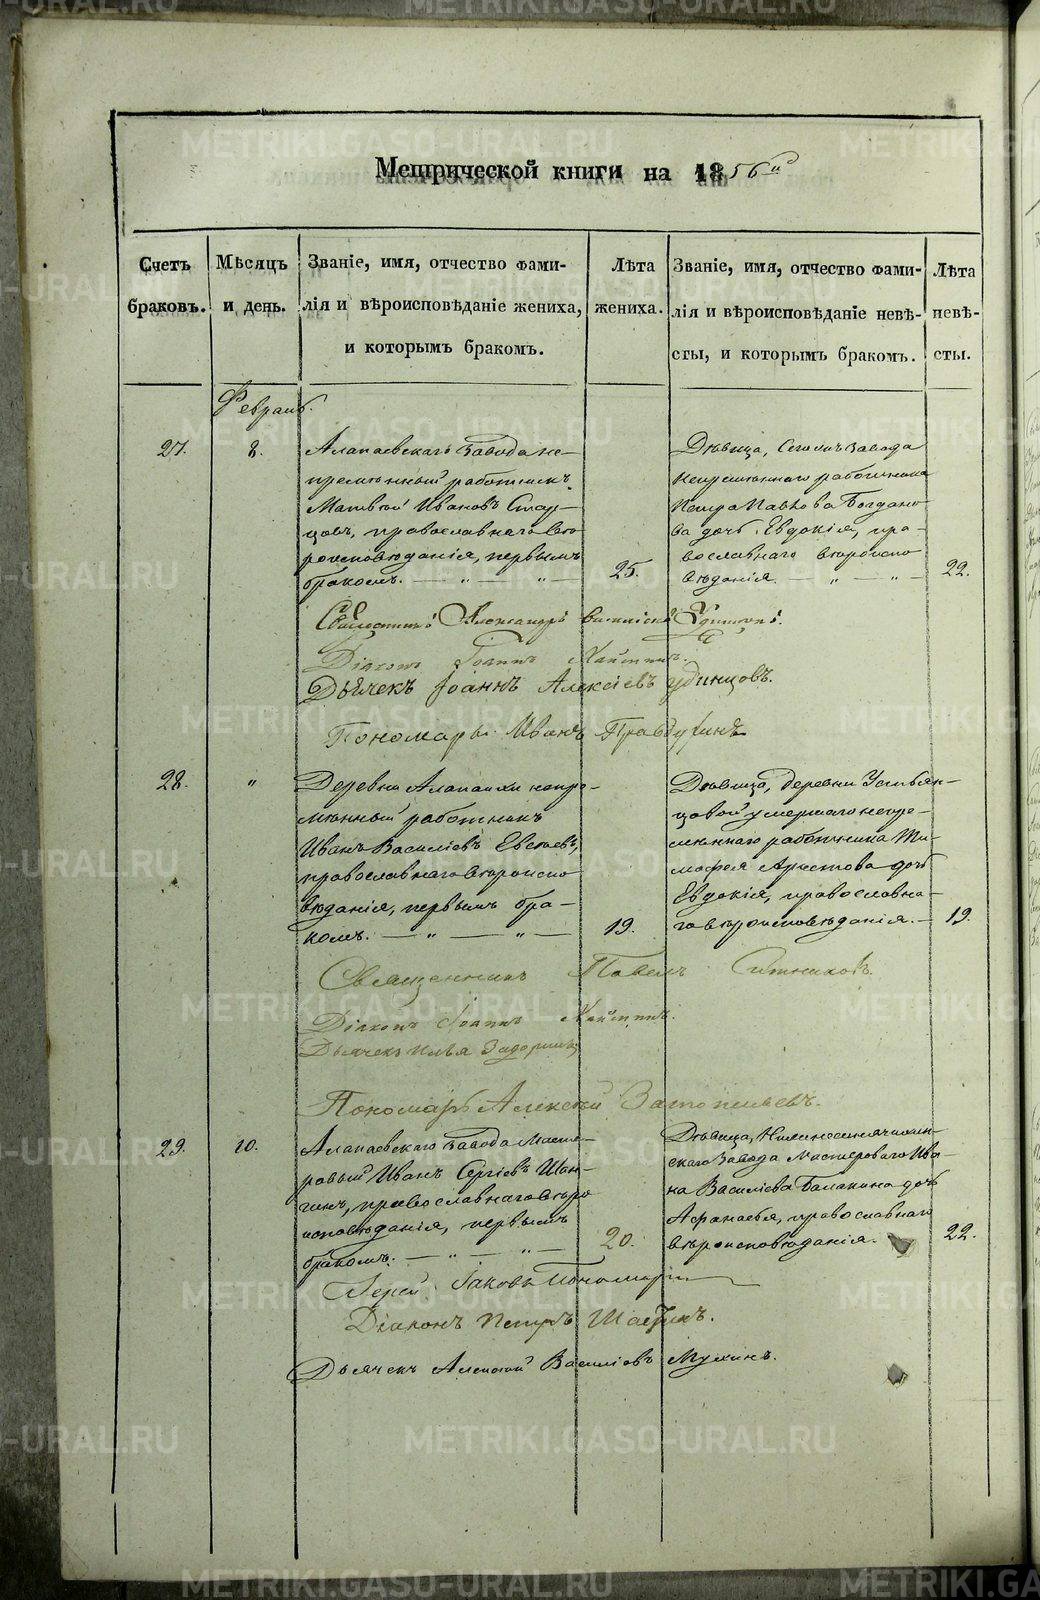 Метрической книги на 1856й
Счетъ браковъ.
Мѣсяцъ и день.
Званіе, имя, отчество фами-
лія и вѣроисповѣданіе жениха,
и которымъ бракомъ.
Лѣта
жениха.
Званіе, имя, отчество фами-
лія и вѣроисповѣданіе невѣ-
сты, и которымъ бракомъ.
Лѣта
невѣ-
сты.
Февраль.
27.
8.
Алапаевскаго завода не-
премѣнный работникъ
Матвѣй Ивановъ Стар-
цовъ, православнаго вѣ-
роисповѣданія, первымъ
бракомъ. — " — " —
25.
Дѣвица, Сегожъ завода
непремѣннаго работника
Петра Павлова Богдано-
ва дочь Евдокія, пра-
вославнаго вѣроиспо
вѣданія. — " — " —
22.
Священникъ Александръ
Діаконъ Іоаннъ
Дьячекъ Іоаннъ Алексіевъ Удинцовъ.
Пономарь Иванъ
28.
"
Деревни Алапаихи непре-
мѣнный работникъ
Иванъ Василіевъ Евсѣевъ,
православнаго вѣроиспо
вѣданія, первымъ бра-
комъ. — " — " —
19.
Дѣвица, деревни Устьян-
цовой умершаго непре-
мѣннаго работника Ти-
мофея Аристова дочь
Евдокія, православна-
го вѣроисповѣданія. —
19.
Священникъ Павелъ Ситниковъ.
Діаконъ Іоаннъ
Дьячекъ Илья Задоринъ
Пономарь Алексѣй
29.
10.
Алапаевскаго завода масте-
ровый Иванъ Сергіевъ Шан-
гинъ, православнаго вѣро
исповѣданія, первымъ
бракомъ. — " — " —
20.
Дѣвица, Нижнесинячихин-
скаго завода мастероваго Ива-
на Василіева Балакина дочь
Афанасія, православнаго
вѣроисповѣданія.
22.
Іерей Іаковъ Пономаревъ
Діаконъ Петръ
Дьячекъ Алексѣй Василіевъ Мухинъ.
METRIKI.GASO-URAL.RU